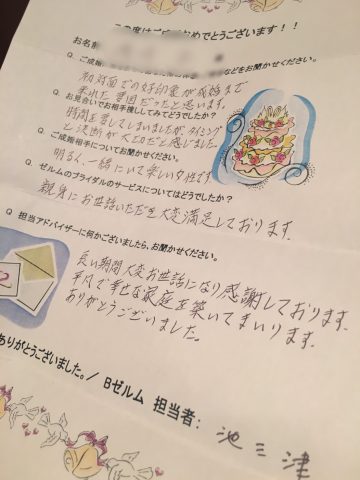 この度はご成婚おめでとうございます！！
お名前
Q ご成婚 などをお聞かせください。
初対面での好印象が成婚まで
来れた要因だったと思います。
Q お見合いでお相手探ししてみてどうでしたか？
時間を要してしまいましたが、タイミング
と決断が大切だと感じました。
Q ご成婚相手についてお聞かせください。
明るく、一緒にいて楽しい女性です。
Q ゼルムのブライダルのサービスについてはどうでしたか？
親身にお世話いただき大変満足しております。
Q 担当アドバイザーに何かございましたら、お聞かせください。
長い期間大変お世話になり感謝しております。
平凡で幸せな家庭を築いてまいります。
ありがとうございました。
ありがとうございました。/ Bゼルム 担当者：
池三津